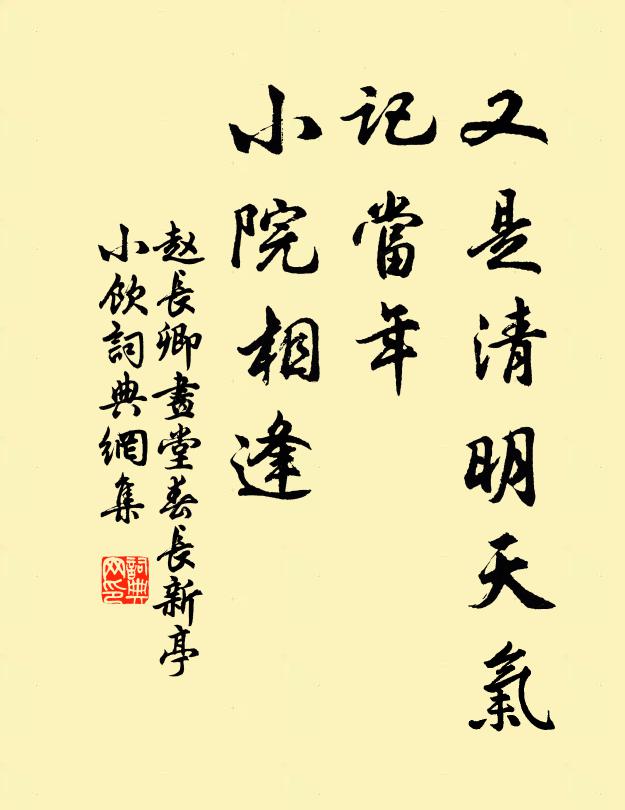 又是清明天氣
記當年
小院相逢
赵長卿畫堂春長新亭
小飲詞典網集
詞典
网印